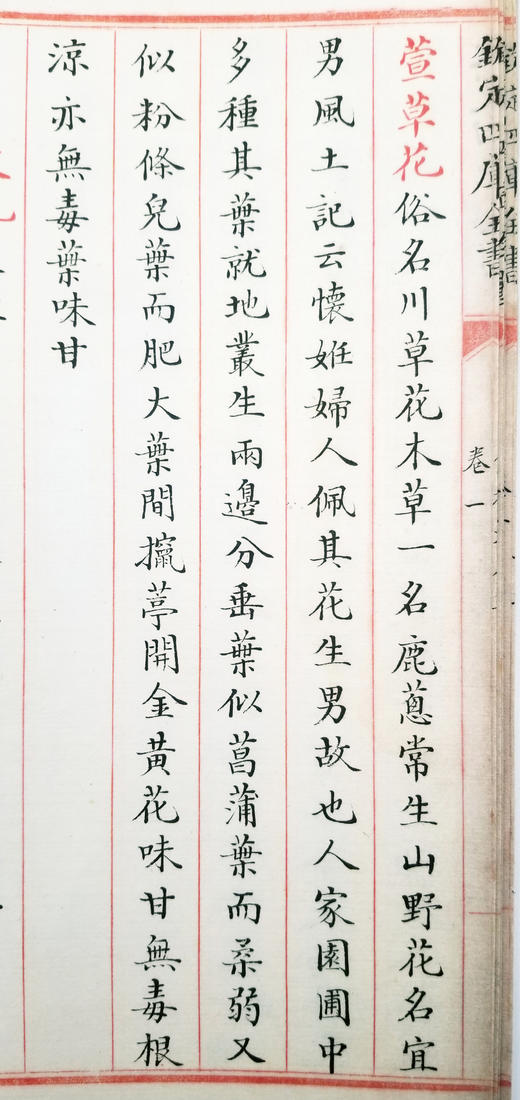 欽定四庫全書
卷一
萱草花俗名川草花木草一名鹿蔥常生山野花名宜
男風土記云懷姙婦人佩其花生男故也人家園圃中
多種其葉就地叢生兩邊分垂葉似菖蒲葉而柔弱又
似粉條兒葉而肥大葉間攛葶開金黃花味甘無毒根
涼亦無毒葉味甘